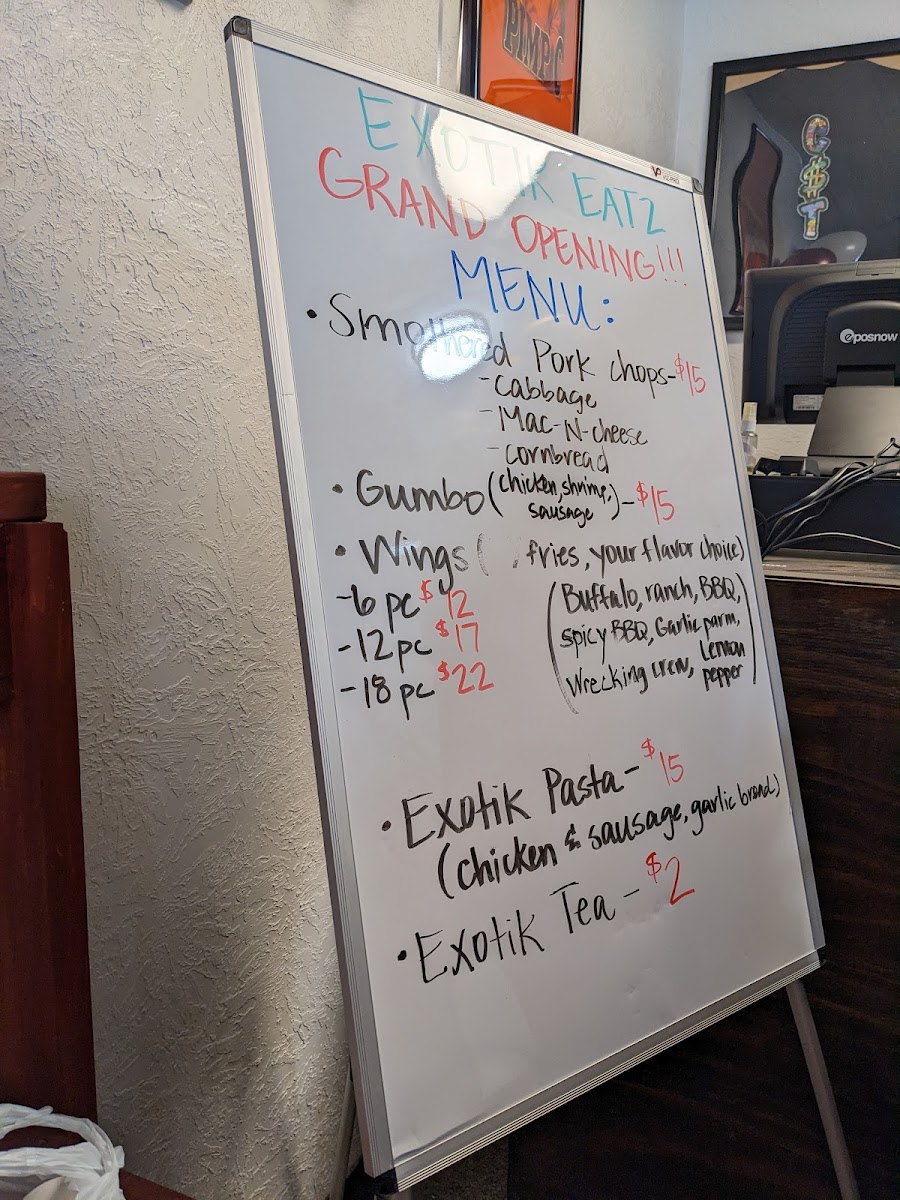 PIMP
C$T
EXOTIK EATZ
GRAND OPENING!!!
MENU:
• Smothered Pork chops- $15
-cabbage
-Mac-N-cheese
-cornbread
• Gumbo (chicken, shrimp, sausage) - $15
• Wings ( fries, your flavor choice)
-6 pc $12
-12 pc $17
-18 pc $22
(Buffalo, ranch, BBQ,
spicy BBQ, Garlic parm,
Wrecking crew, Lemon pepper)
• Exotik Pasta - $15
(chicken & sausage, garlic bread)
• Exotik Tea - $2
eposnow